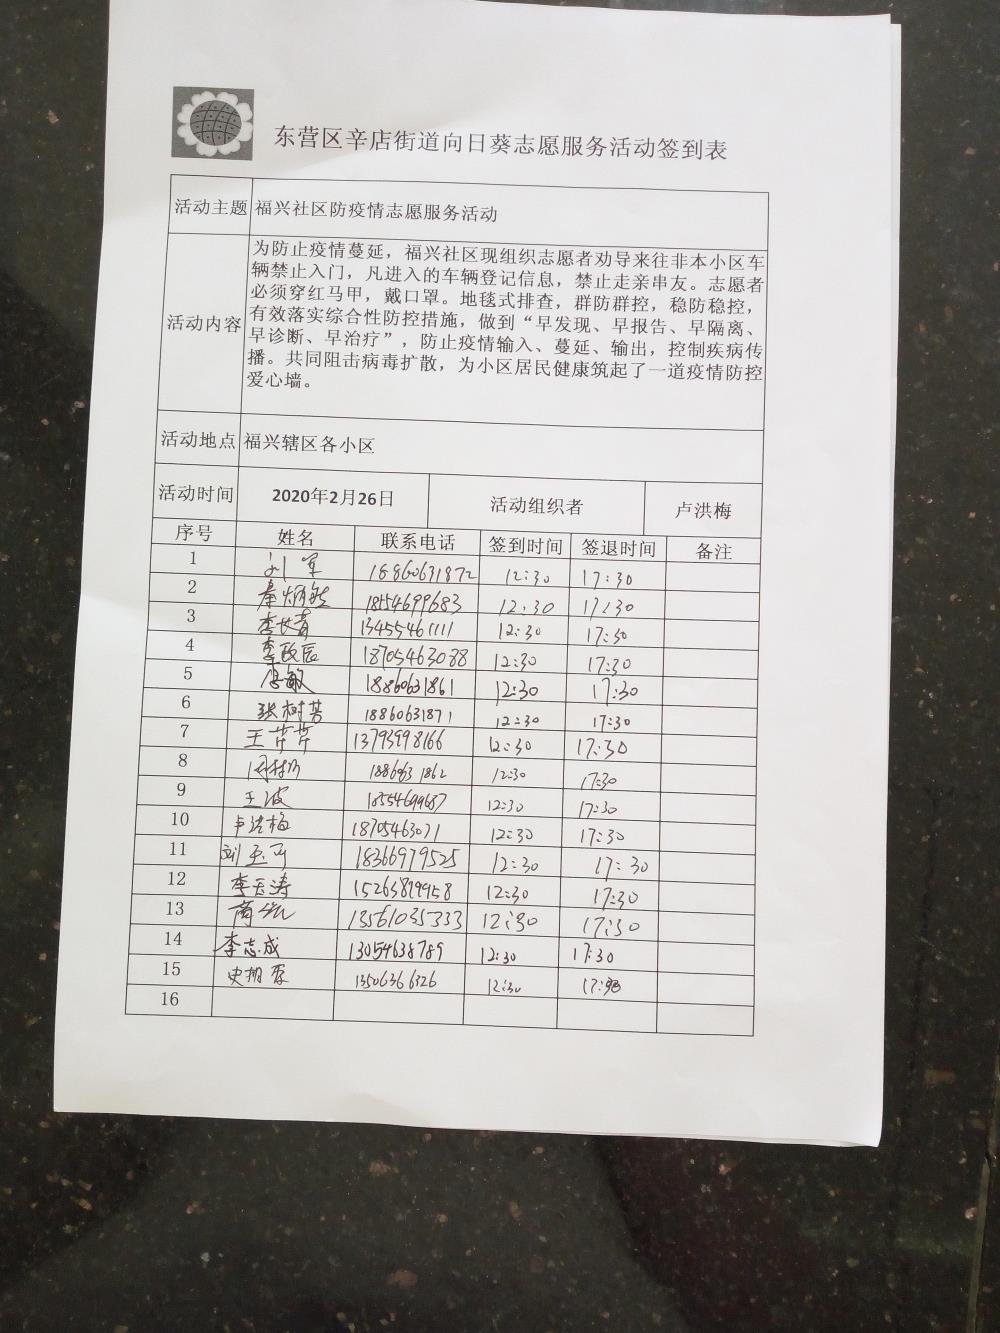 东营区辛店街道向日葵志愿服务活动签到表
活动主题 福兴社区防疫情志愿服务活动
活动内容
为防止疫情蔓延，福兴社区现组织志愿者劝导来往非本小区车
辆禁止入门，凡进入的车辆登记信息，禁止走亲串友。志愿者
必须穿红马甲，戴口罩。地毯式排查，群防群控，稳防稳控，
有效落实综合性防控措施，做到“早发现、早报告、早隔离、
早诊断、早治疗”，防止疫情输入、蔓延、输出，控制疾病传
播。共同阻击病毒扩散，为小区居民健康筑起了一道疫情防控
爱心墙。
活动地点 福兴辖区各小区
活动时间 2020年2月26日 活动组织者 卢洪梅
序号 姓名 联系电话 签到时间 签退时间 备注
1 刘军 18860631872 12:30 17:30
2 秦炳 18554699683 12:30 17:30
3 李长青 13455461111 12:30 17:30
4 李政辰 18705463088 12:30 17:30
5 18860631861 12:30 17:30
6 张树芳 18860631871 12:30 17:30
7 王芹芹 13793998166 12:30 17:30
8 18860631862 12:30 17:30
9 王波 18554699687 12:30 17:30
10 卢洪梅 18705463071 12:30 17:30
11 刘 18366979525 12:30 17:30
12 李玉涛 15263879958 12:30 17:30
13 13561035333 12:30 17:30
14 李志成 13054638789 12:30 17:30
15 史 13506366326 12:30 17:30
16